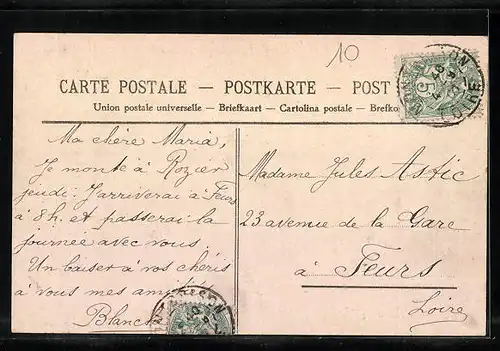 10
CARTE POSTALE — POSTKARTE — POST
Union postale universelle — Briefkaart — Cartolina postale — Brefko
Ma chère Maria,
Je monte à Rozier
jeudi. J'arriverai à Feurs
à 8h. et passerai la
journée avec vous
Un baiser à vos chéris
à vous mes
Blanc
Madame Jules Astic
23 avenue de la Gare
à Feurs
Loire
5
LOIRE